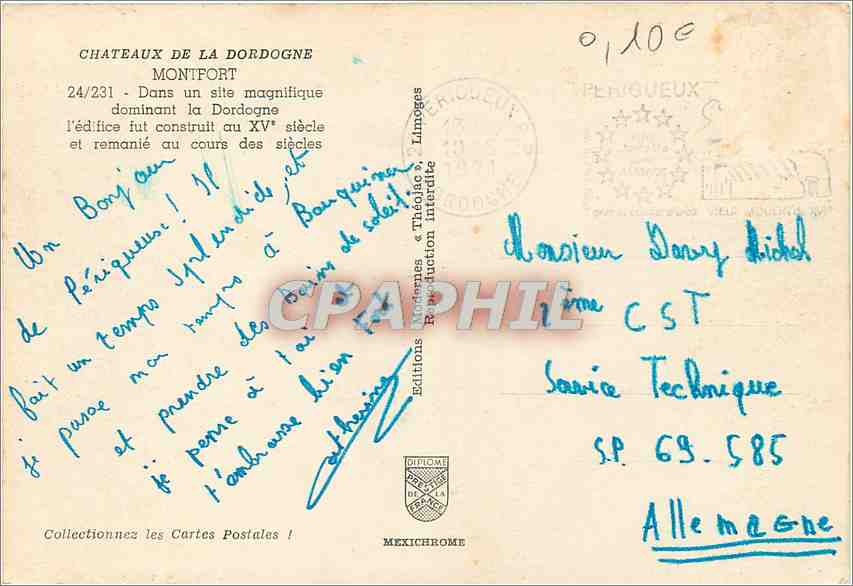 CHATEAUX DE LA DORDOGNE
MONTFORT
24/231 - Dans un site magnifique
dominant la Dordogne
l'édifice fut construit au XVe siècle
et remanié au cours des siècles
0,10€
PERIGUEUX
DORDOGNE
PERIGUEUX
Un Bonjour
de Périgueux! Il
fait un temps splendide, et
je passe mon temps à Bouquiner
et prendre des bains de soleil!
je pense à toi &
t'embrasse bien
Catherine
Editions Modernes « Théojac », Limoges
Reproduction interdite
CPAPHIL
Monsieur Michel
2ème CST
Service Technique
S.P. 69.585
Allemagne
DIPLOME
PRESTIGE
DE LA
FRANCE
Collectionnez les Cartes Postales !
MEXICHROME